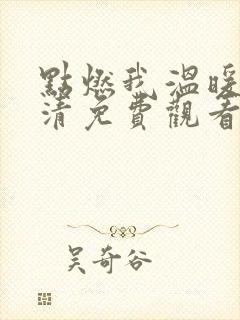 點燃我,溫暖
清免費觀看
吴奇谷